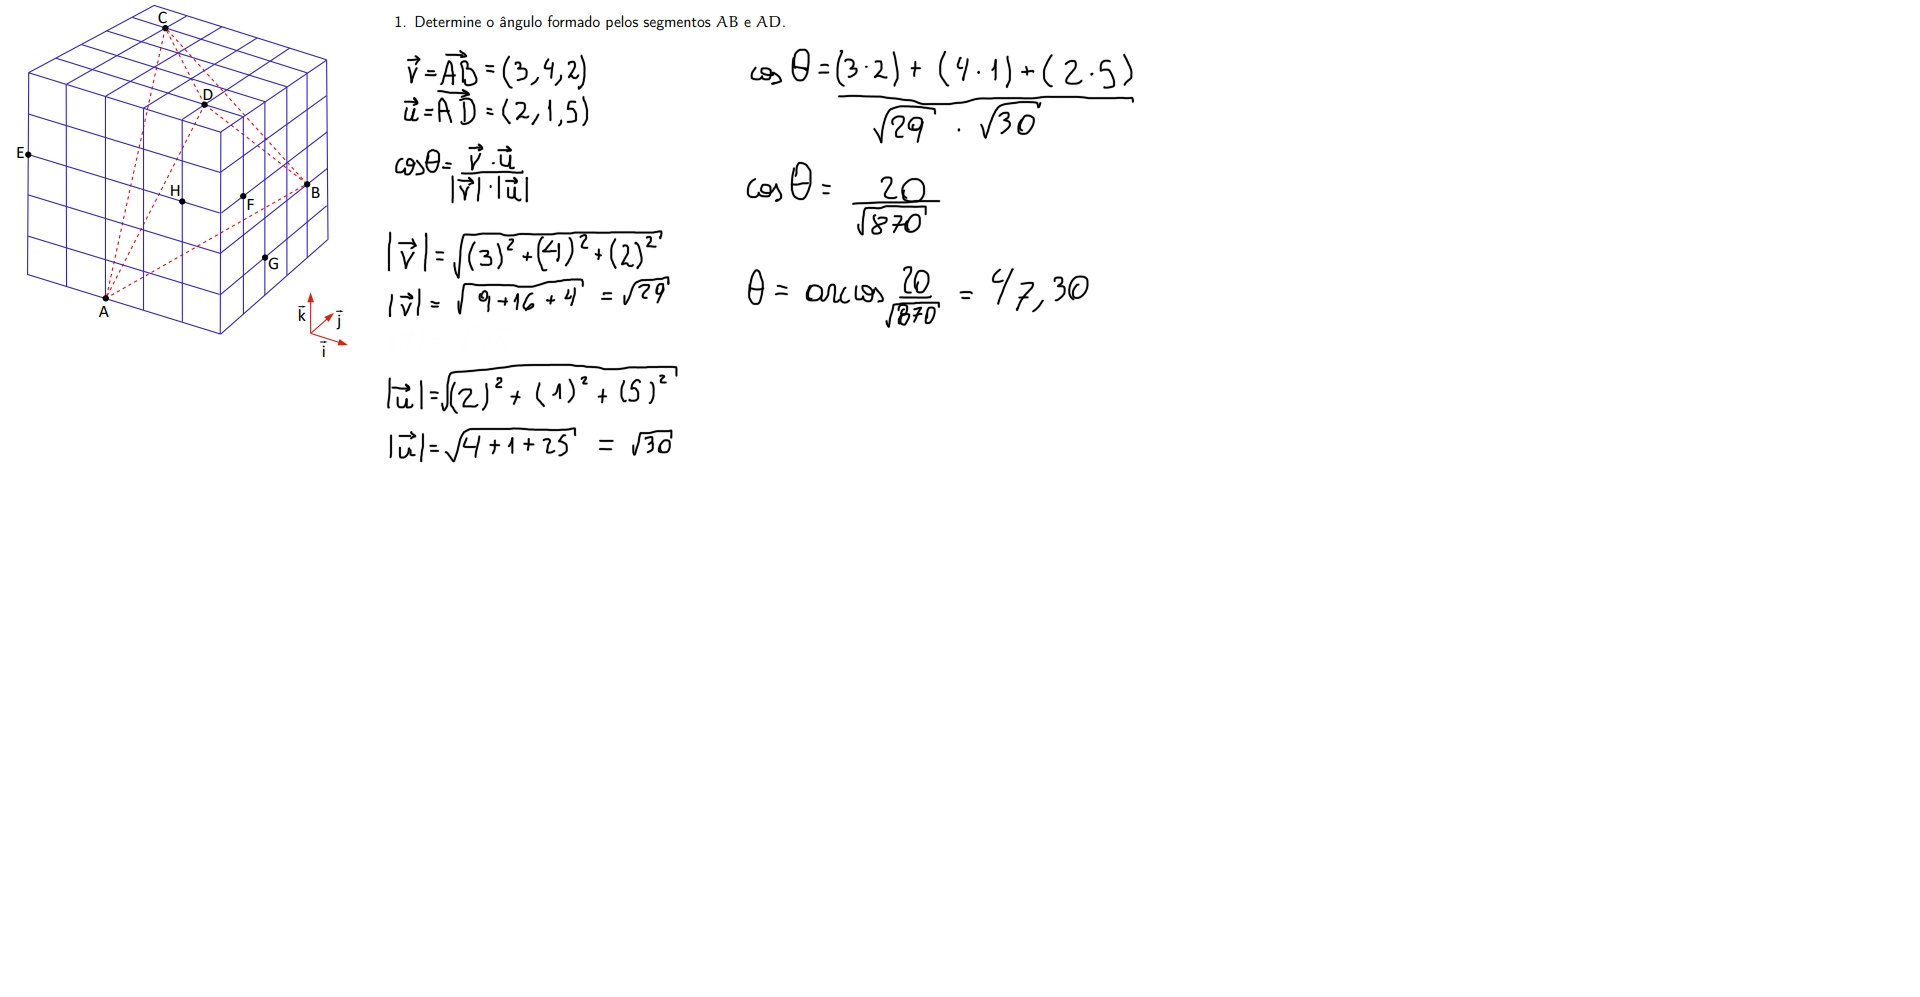 C
D
E
H
F
B
G
A
k⃗
j⃗
i⃗
1. Determine o ângulo formado pelos segmentos AB e AD.
v⃗ = A⃗B⃗ = (3,4,2)
u⃗ = A⃗D⃗ = (2,1,5)
cosθ = v⃗ · u⃗ / |v⃗| · |u⃗|
|v⃗| = √((3)² + (4)² + (2)²)
|v⃗| = √(9+16+4) = √29
|u⃗| = √((2)² + (1)² + (5)²)
|u⃗| = √(4+1+25) = √30
cos θ = (3·2) + (4·1) + (2·5) / √29 · √30
cos θ = 20 / √870
θ = arccos 20/√870 = 47,30